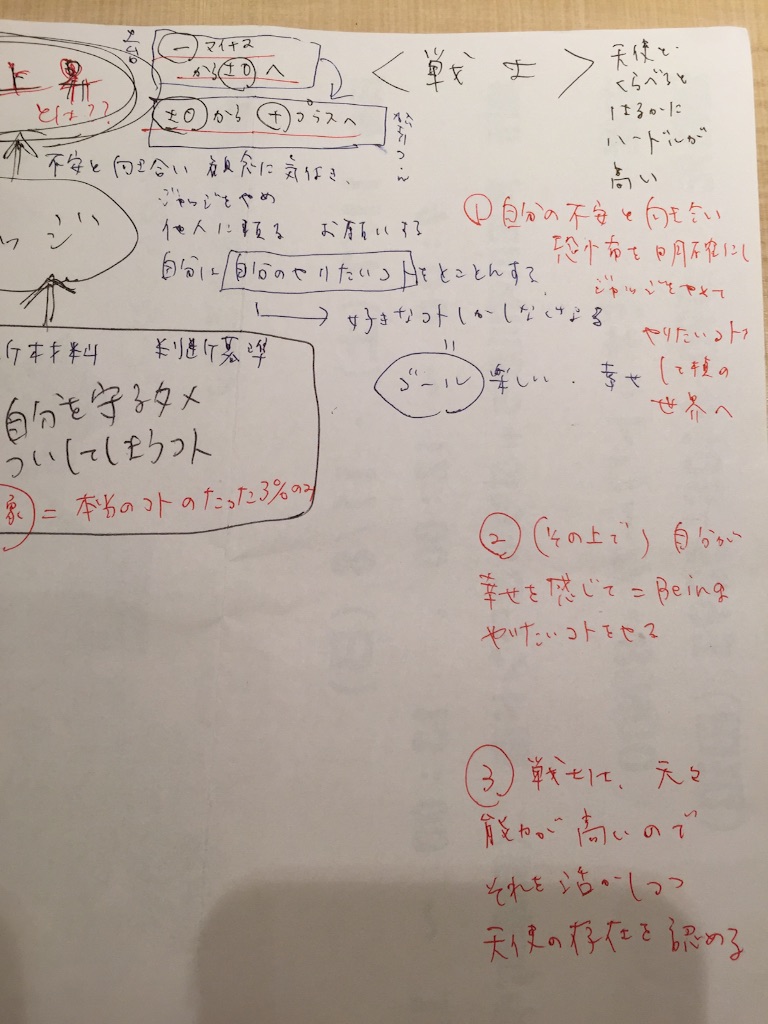 − マイナス
から ±0 へ
±0 から + プラスへ
<戦士>
天使と
くらべると
はるかに
ハードルが
高い
上界
とは??
不安と向き合い 観念に気付き、
ジャッジをやめ
他人に頼る お願いする
自分は 自分のやりたいコトをとことんする
→ 好きなコトしかしなくなる
=
ゴール 楽しい・幸せ
ッジ
ケ材料 判断基準
自分を守るタメ
ついしてしまうコト
象 = 本当のコトのたった3%のみ
① 自分の不安と向き合い
恐怖を明確にし
ジャッジをやめて
やりたいコト
して
世界へ
② (その上で) 自分が
幸せを感じて = Being
やりたいコトをやる
③ 戦士は、元々
能力が高いので
それを活かしつつ
天使の存在を認める